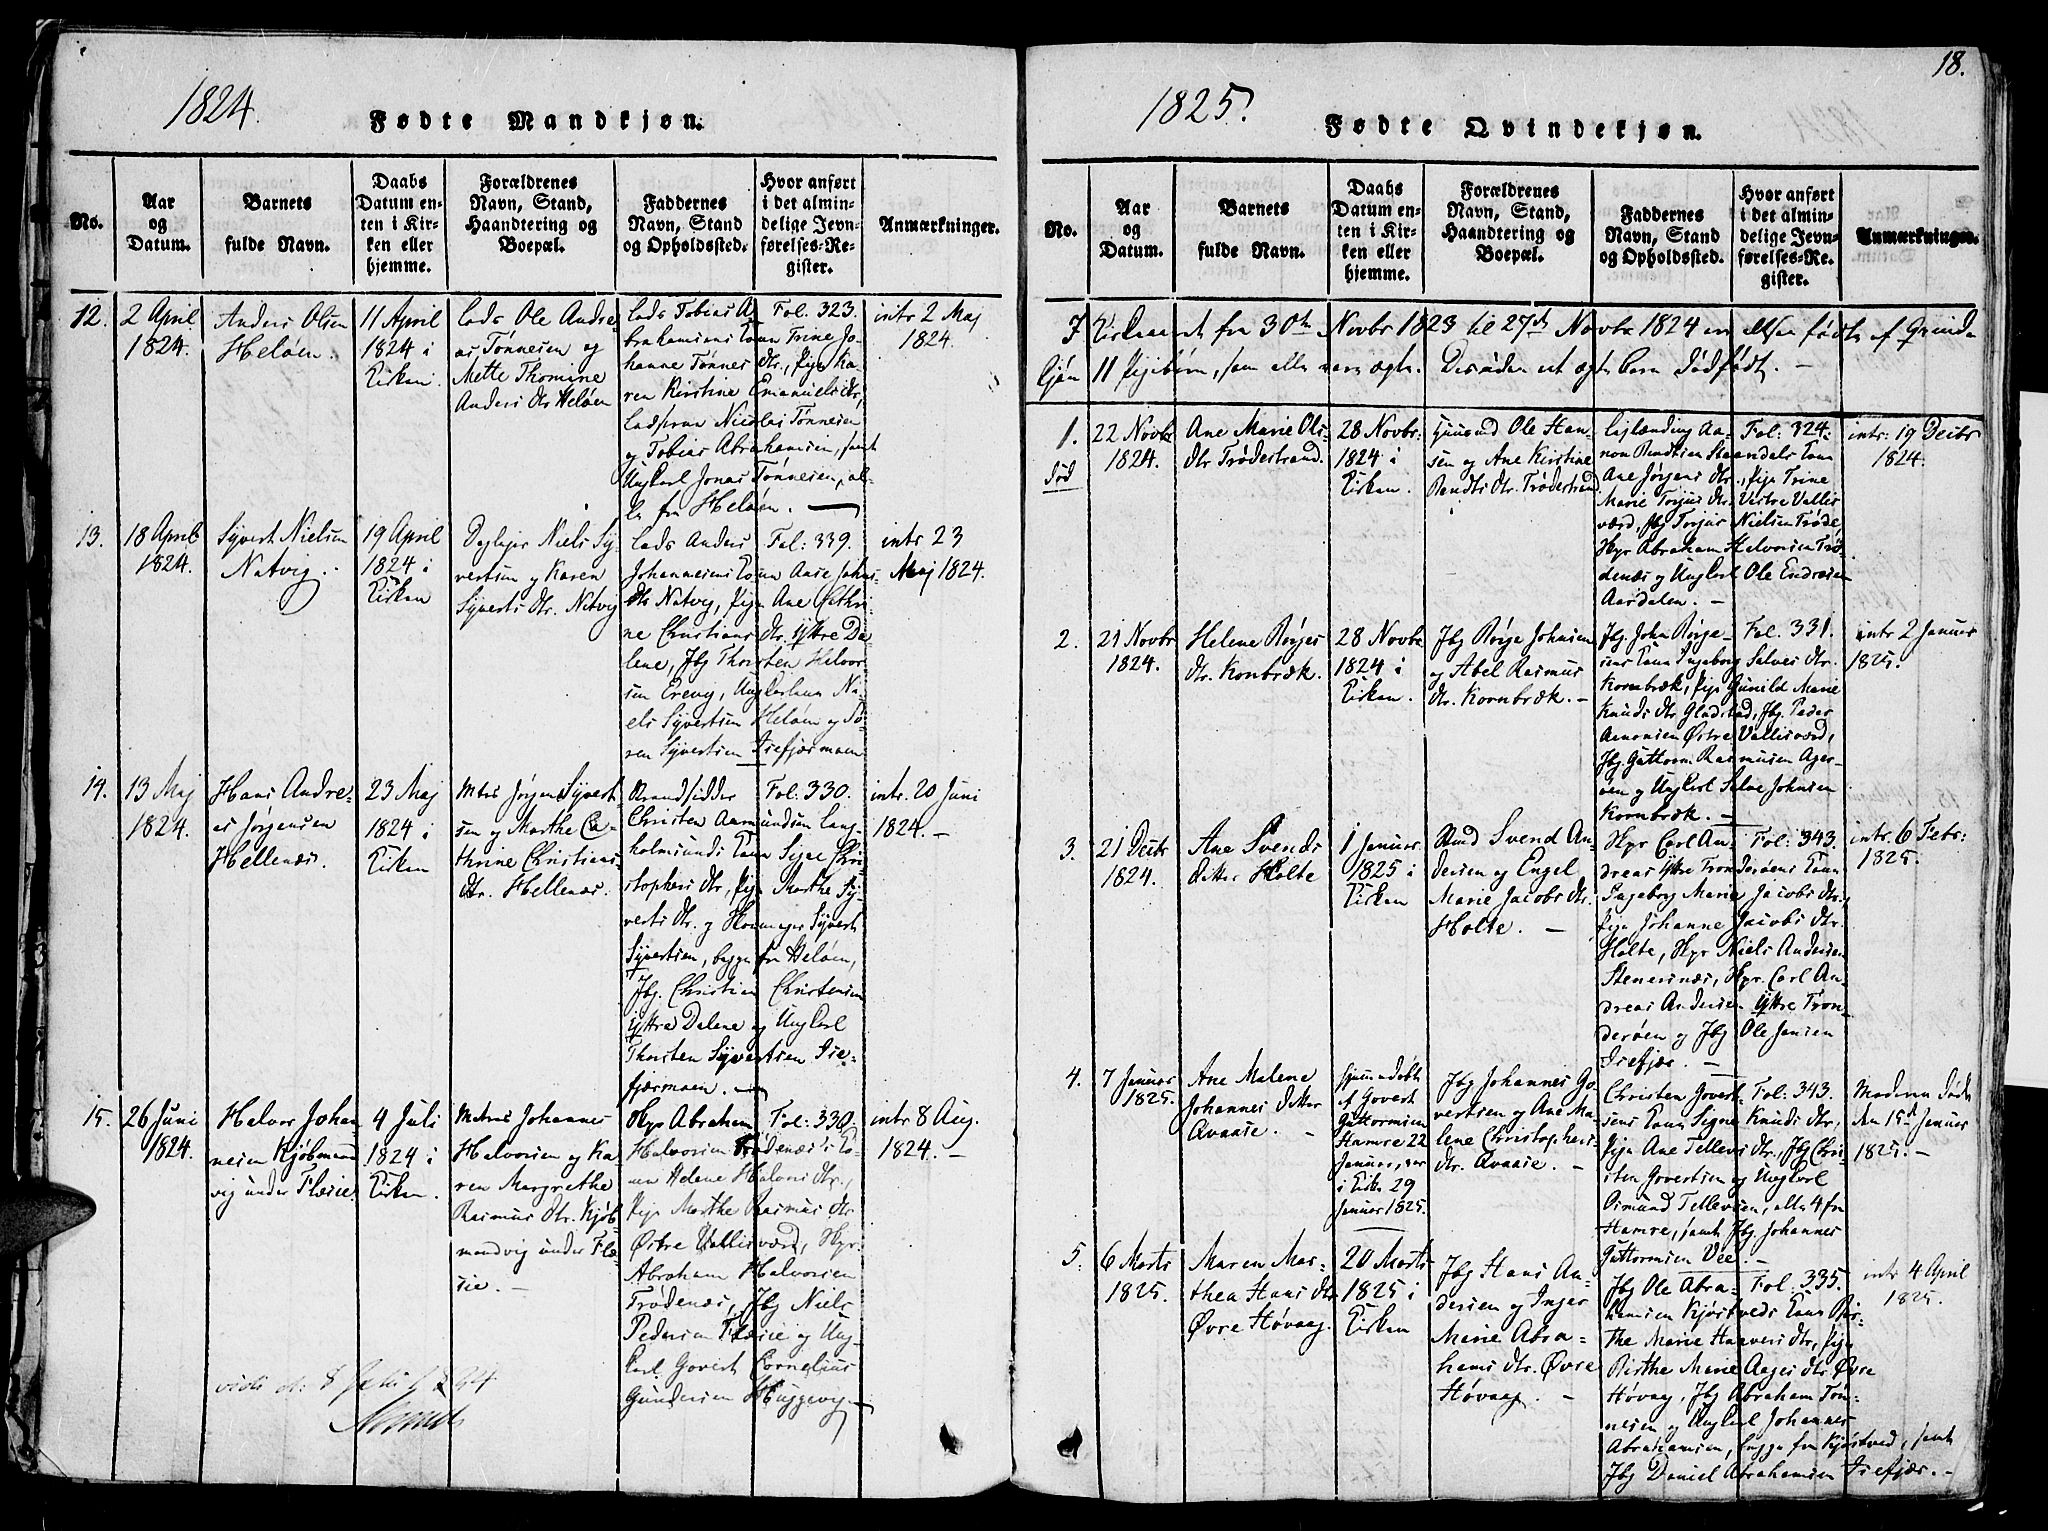 1824.
Fødte Mandkjøn.
No.
Aar
og
Datum.
Barnets
fulde Navn.
Daabs
Datum en-
ten i Kir-
ken eller
hjemme.
Forældrenes
Navn, Stand,
Haandtering og
Boepæl.
Faddernes
Navn, Stand
og Opholdssted.
Hvor anført
i det almin-
delige Jevn-
førelses-Re-
gister.
Anmærkninger.
12.
2 April
1824.
Anders Olsen
Heløen.
11 April
1824 i
Kirken.
Lods Ole Andre-
as Tønnesen og
Mette Thomine
Anders dtr Heløen
Lods Tobias A-
brahamsens Kone Trine Jo-
hanne Tønnes dtr., Pige Ka-
ren Kirstine Emanuels dtr,
Lodsmand Nicolai Tønnesen
og Tobias Abrahamsen, samt
Ungkarl Jonas Tønnesen, al-
le fra Heløen.
Fol. 323.
intr 2 Maj
1824.
13.
18 April
1824.
Syvert Nielsen
Natvig.
19 April
1824 i
Kirken
Niels Sy-
vertsen og Karen
Syverts dtr. Natvig
Lods Anders
Johannesens Kone Aase Johns
dtr Natvig, Pige Ane Cathri-
ne Christians dtr. Ytre Da-
lene, Jbg Thorsten Helvor-
sen Erevig, Ungkarlene Ni-
els Syvertsen Heløen og Sø-
ren Syvertsen Isefjærmoen
Fol: 339.
intr 23
Maj 1824.
14.
13 Maj
1824.
Hans Andre-
as Jørgensen
Hellenæs.
23 Maj
1824 i
Kirken
Matros Jørgen Syvert-
sen og Marthe Ca-
thrine Christians
dtr. Hellenæs.
Strandsidder
Christen Aamundsen Lang-
holmsunds Kone Signe Chri-
stophers dtr, Pige Marthe Sy-
verts dtr. og Syvert
Syvertsen, begge fra Heløen,
Jbg. Christian Christensen
Yttre Dalene og Ungkarl
Thorsten Syvertsen Ise-
fjærmoen.
Fol: 330.
intr. 20 Juni
1824.
15.
26 Juni
1824.
Halvor Johan-
nesen Kjøbmand-
vig under Flæsie.
4 Juli
1824 i
Kirken.
Matros Johannes
Halvorsen og Ka-
ren Margrethe
Rasmus dtr. Kjøb-
mandvig under Flæ-
sie.
Skpr Abraham
Halvorsen Trødenæs's Ko-
ne Helene Halvors dtr.,
Pige Marthe Rasmus dtr
Østre Vallisværd, Skpr.
Abraham Halvorsen
Trødenæs, Jbg Niels
Pedersen Flæsie og Ung-
karl Govert Cornelius
Gundersen Huggevig.
Fol: 330
intr 8 Aug.
1824.
18.
1825.
Fødte Qvindekjøn.
No.
Aar
og
Datum.
Barnets
fulde Navn.
Daabs
Datum en-
ten i Kir-
ken eller
hjemme.
Forældrenes
Navn, Stand,
Haandtering og
Boepæl.
Faddernes
Navn, Stand
og Opholdssted.
Hvor anført
i det almin-
delige Jevn-
førelses-Re-
gister.
Anmærkninger.
I Kirkeaaret fra 30te Novbr 1823 til 27de Novbr 1824 ere altsaa fødte af Qvinde-
kjøn 11 Pigebørn, som alle vare ægte. Desuden et ægte Barn Dødfødt.
1.
død
22 Novbr
1824.
Ane Marie Ols-
dtr Trødestrand.
28 Novbr:
1824 i
Kirken.
Ole Han-
sen og Ane Kirstine
Bendts dtr. Trødestrand
Aa-
non Bendtsen Kone
Ane Jørgens dtr., Pige Trine
Marie Torjus dtr. Vestre Vallis-
værd, Jbg Torjus Nielsen Trøde,
Skpr Abraham Halvorsen Trø-
denæs og Ungkarl Ole Endresen
Aasdalen.
Fol: 324.
intr: 19 Decbr
1824.
2.
21 Novbr
1824.
Helene Børges
dtr. Konbræk.
28 Novbr
1824 i
Kirken.
Jbg Børge Johnsen
og Abel Rasmus
dtr. Kornbræk.
Jbg. John Børge-
sens Kone Ingeborg Salves dtr.
Kornbræk, Pige Gunild Marie
Knuds dtr Gladstad, Jbg. Peder
Aanonsen Østre Vallisværd,
Jbg. Guttorm Rasmusen Ager-
øen og Ungkarl Salve Johnsen
Kornbræk.
Fol. 331.
intr 2 Januar
1825.
3.
21 Decbr
1824.
Ane Svends
datter Holte
1 Januar
1825 i
Kirken
Svend An-
dersen og Engel
Marie Jacobs dtr.
Holte.
Skpr Carl An-
dreas Ytre Tronderøens Kone
Ingeborg Marie Jacobs dtr.,
Pige Johanne Jacobs dtr.
Holte, Skpr Niels Andersen
Stenersnæs, Skpr. Carl An-
dreas Andersen Yttre Tron-
derøen og Jbg Ole Jansen
Isefjær.
Fol: 343.
intr 6 Febr:
1825.
4.
7 Januar
1825.
Ane Malene
Johannes datter
Qvaase.
hjemmedøbt
af Govert
Guttormsen
Hamre 22
Januar, var
i Kirke 29
Januar 1825.
Jbg Johannes Go-
vertsen og Ane Ma-
lene Christophers
dtr. Qvaase.
Christen Govert-
sens Kone Signe Knuds dtr,
Pige Ane Tellevs dtr., Jbg Chri-
sten Govertsen og Ungkarl
Osmund Tellevsen, alle 4 fra
Hamre, samt Jbg. Johannes
Guttormsen Vee.
Fol: 343.
Moderen døde
den 15de Januar
1825.
5.
6 Marts
1825.
Maren Mar-
thea Hans dtr
Øvre Høvaag.
20 Marts
1825 i
Kirken
Jbg Hans An-
dersen og Inger
Marie Abra-
hams dtr. Øvre
Høvaag.
Jbg Ole Abra-
hamsen Kjøstveds Kone Bir-
the Marie Haavers dtr, Pige
Birthe Marie Aages dtr Øvre
Høvaag, Jbg Abraham Tøn-
nesen og Ungkarl Johannes
Abrahamsen, begge fra Kjøstved, samt
Jbg Daniel Abrahamsen Isefjær.
Fol: 335.
intr 4 April
1825.